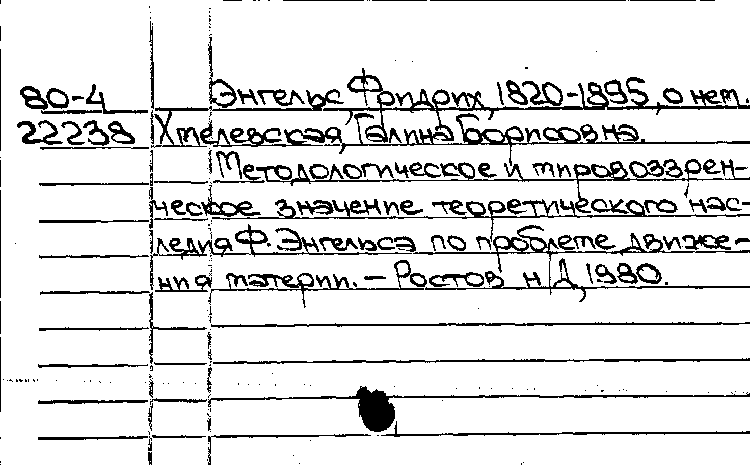 80-4 Энгельс Фридрих, 1820-1895, о нем.
22238 Хмелевская, Галина Борисовна.
Методологическое и мировоззрен-
ческое значение теоретического нас-
ледия Ф. Энгельса по проблеме движе-
ния материи. - Ростов н/Д, 1980.